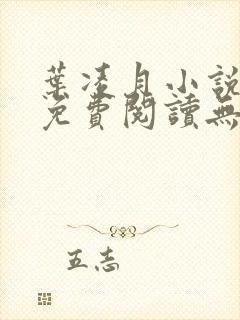 葉凌月小說
免費閱讀無
五志